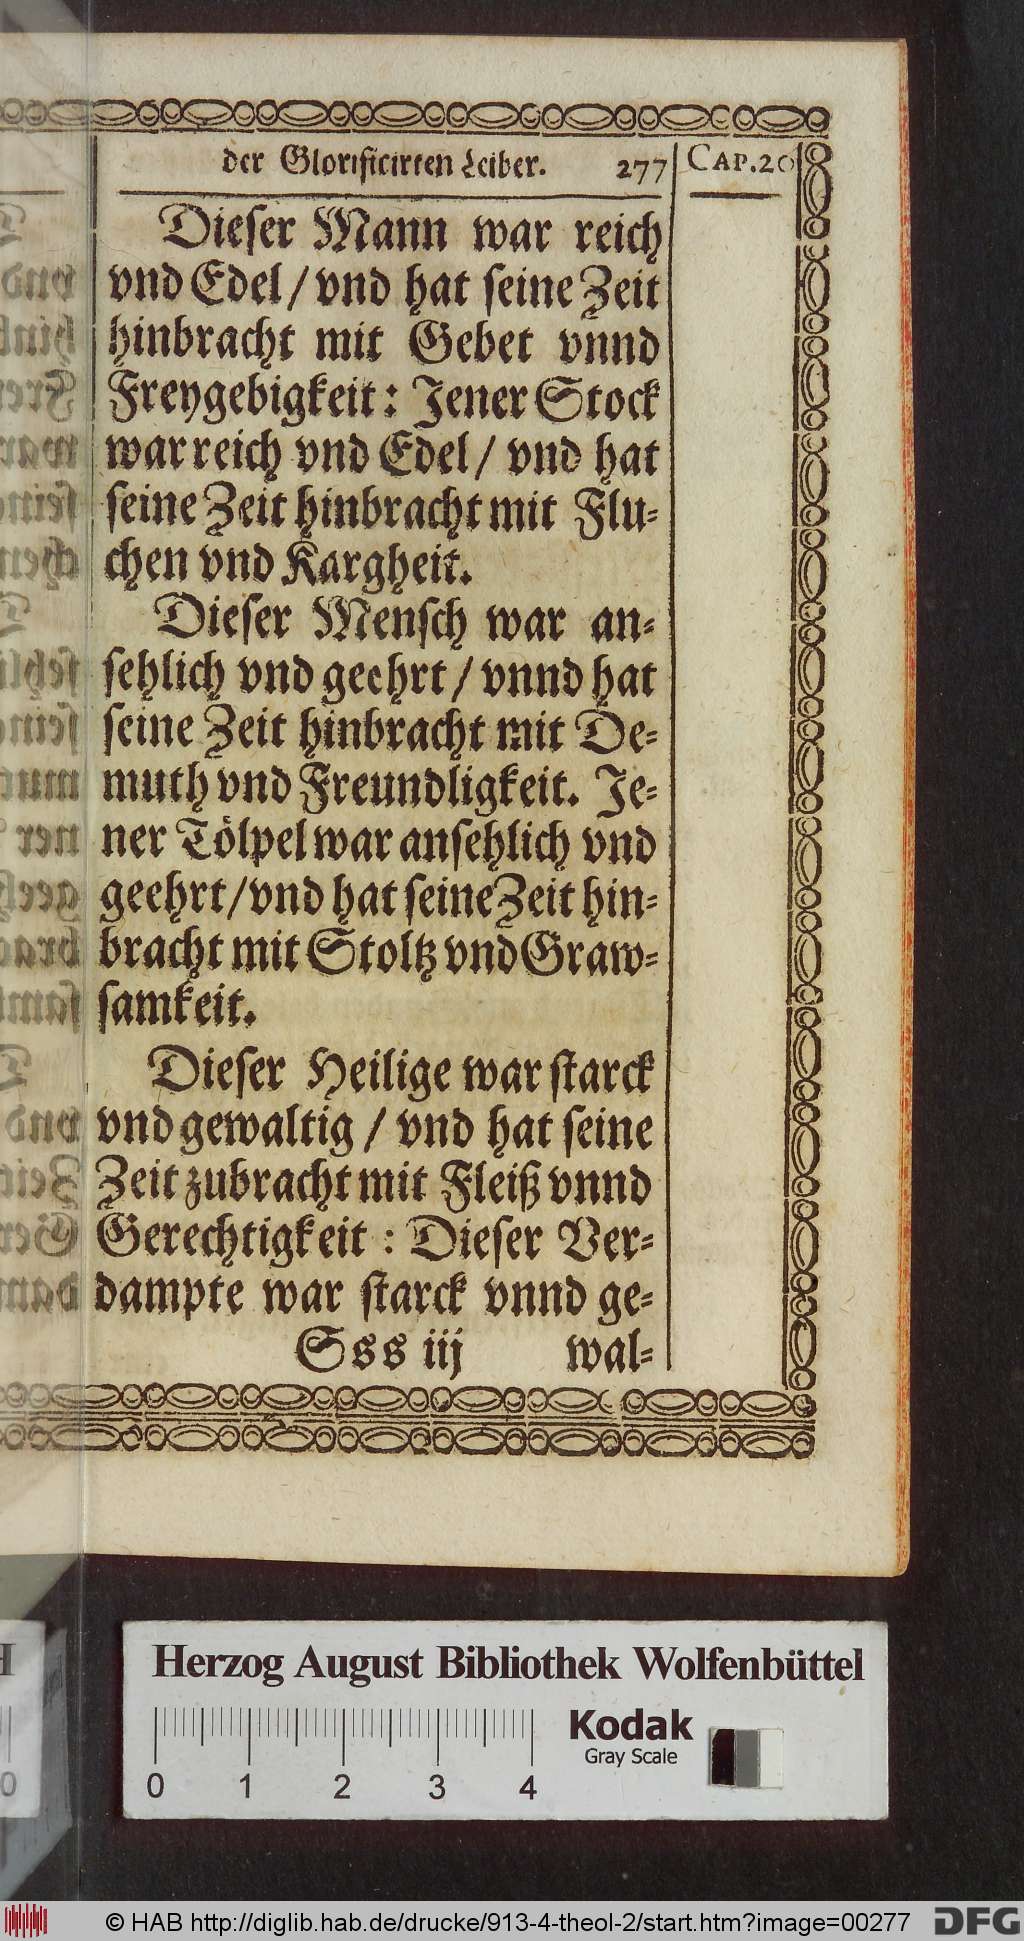 der Glorificirten Leiber. 277 CAP.20
Dieser Mann war reich
vnd Edel / vnd hat seine Zeit
hinbracht mit Gebet vnnd
Freygebigkeit: Jener Stock
war reich vnd Edel / vnd hat
seine Zeit hinbracht mit Flu-
chen vnd Kargheit.
Dieser Mensch war an-
sehlich vnd geehrt / vnnd hat
seine Zeit hinbracht mit De-
muth vnd Freundligkeit. Je-
ner Tölpel war ansehlich vnd
geehrt / vnd hat seine Zeit hin-
bracht mit Stoltz vnd Graw-
samkeit.
Dieser Heilige war starck
vnd gewaltig / vnd hat seine
Zeit zubracht mit Fleiß vnnd
Gerechtigkeit : Dieser Ver-
dampte war starck vnnd ge-
Sss iij wal-
Herzog August Bibliothek Wolfenbüttel
Kodak
Gray Scale
0 1 2 3 4
© HAB http://diglib.hab.de/drucke/913-4-theol-2/start.htm?image=00277 DFG